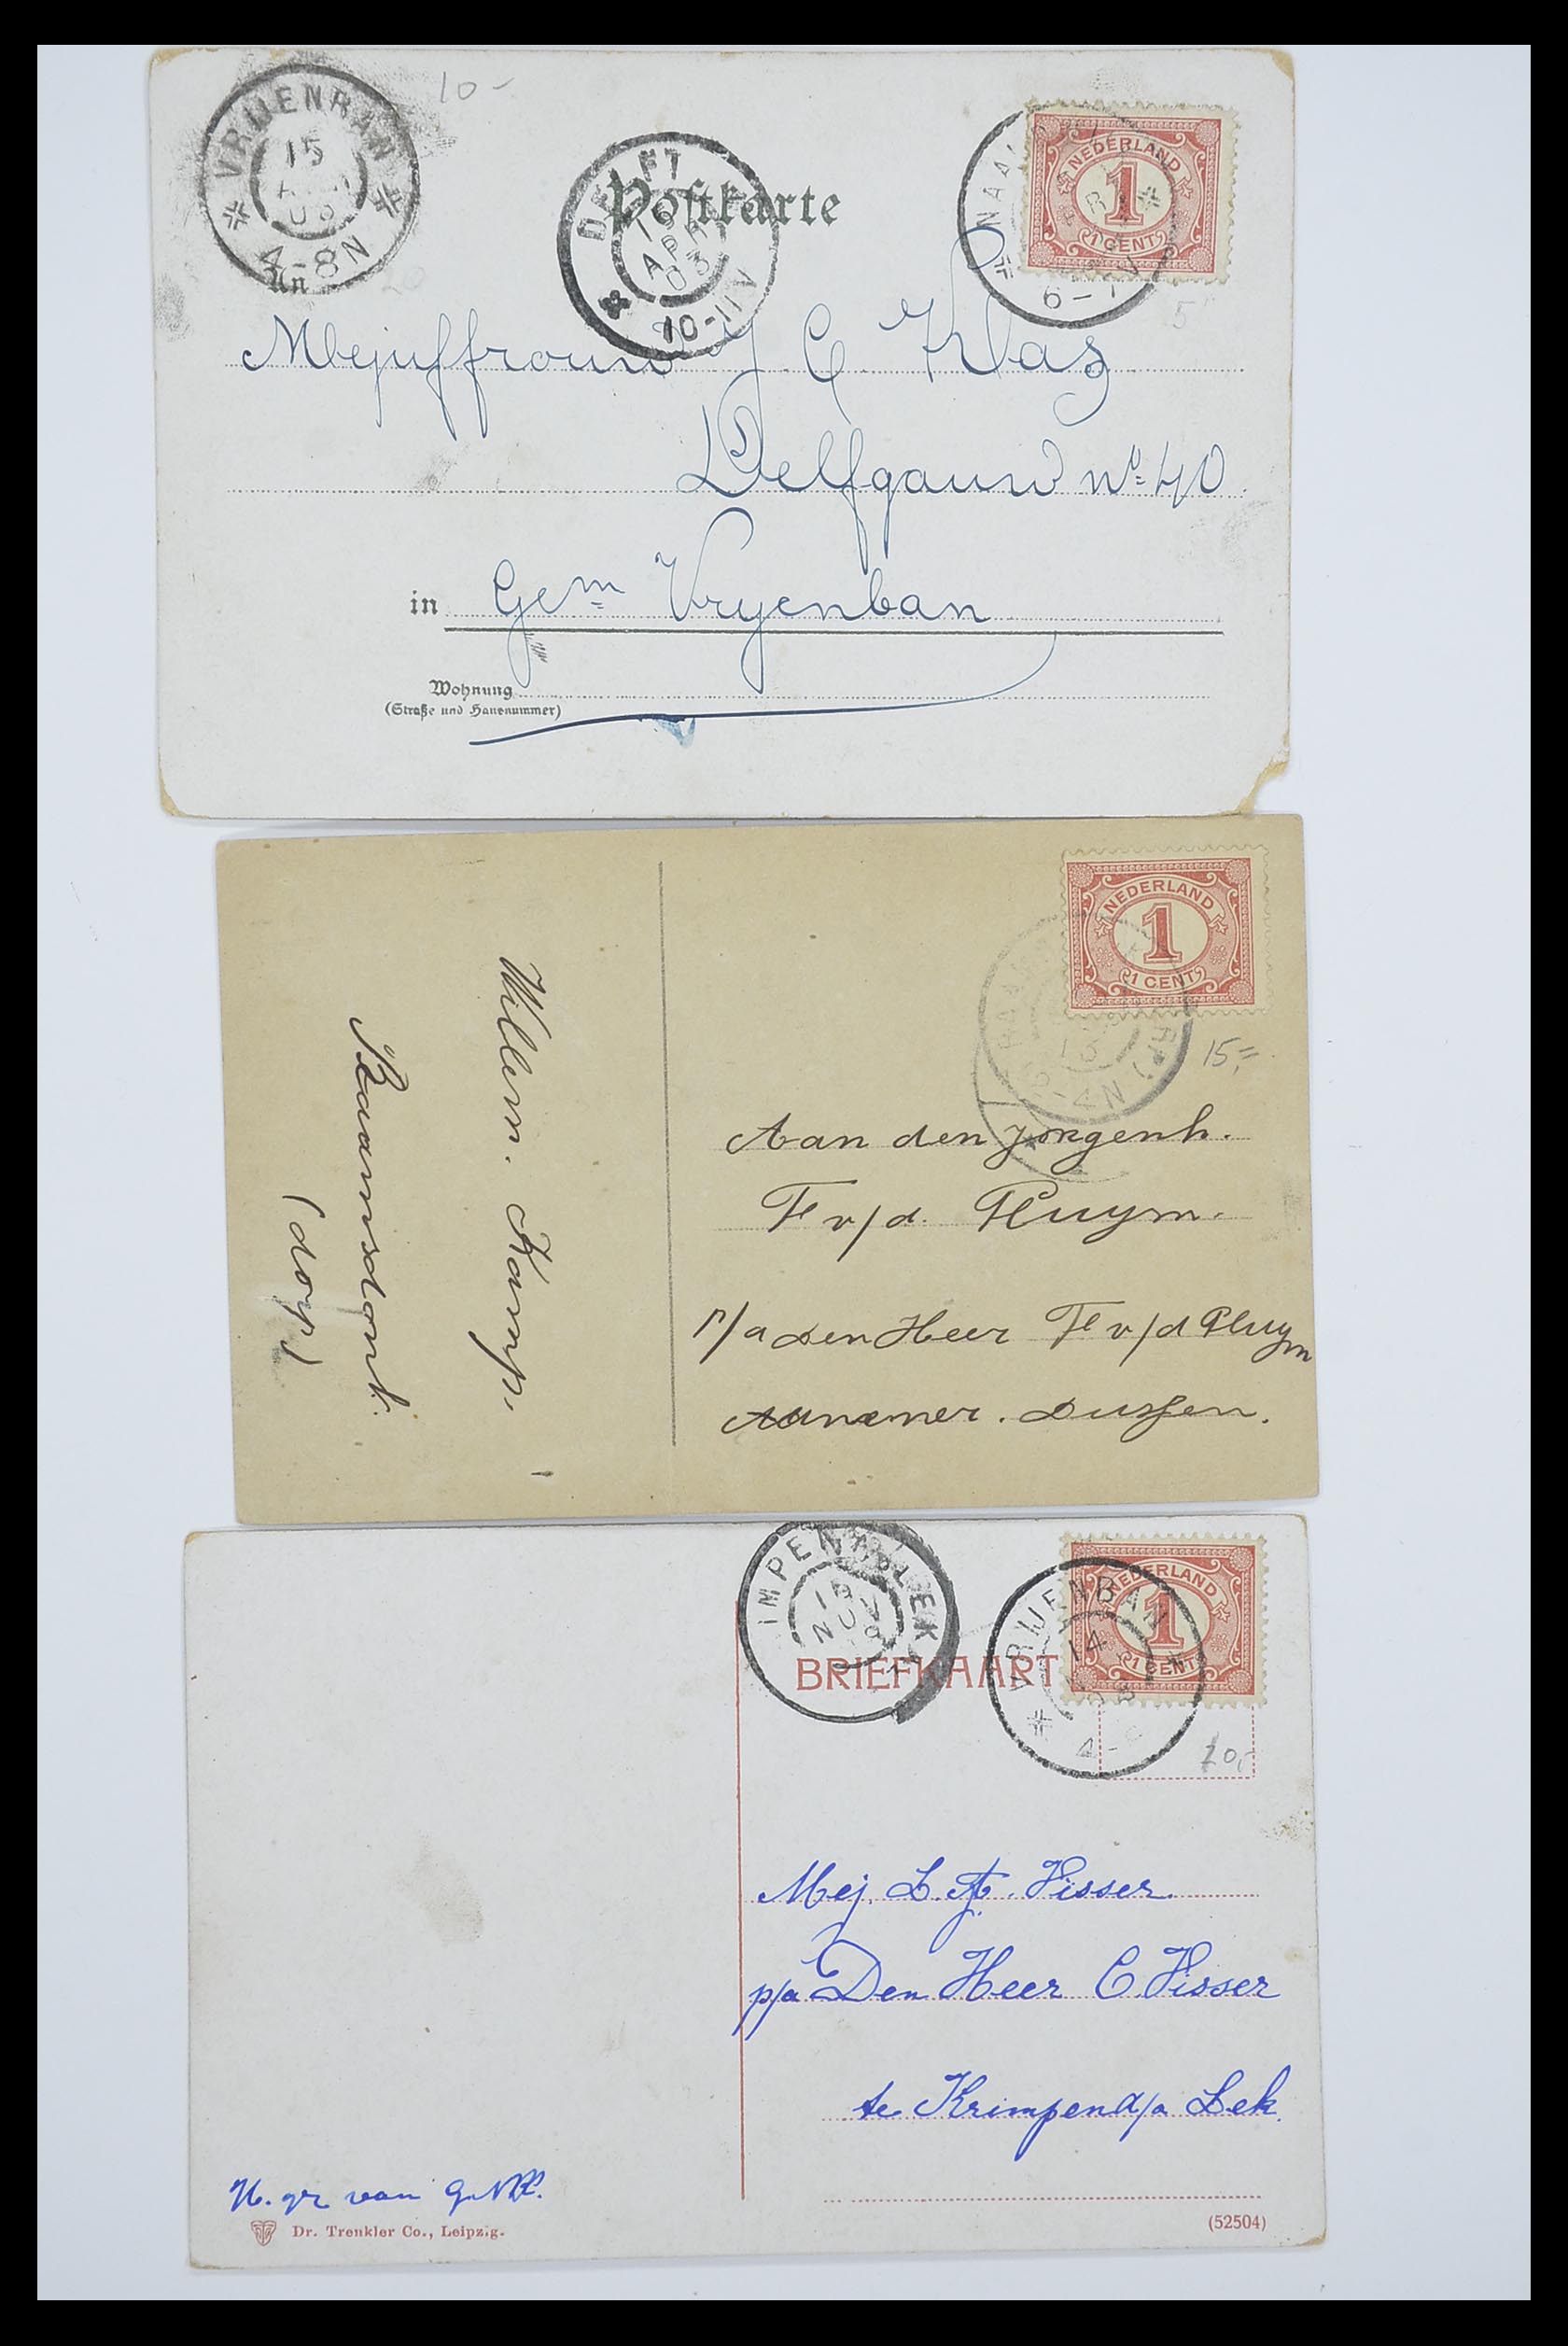 10-
VRIJENBAN
15
03
4-8N
DELFT
APR
03
10-11V
Postkarte
NAA
6-7
NEDERLAND
1
1 CENT
5
An
Mejuffrouw J. C. Klaz
Delfgauw no 40
in Gem Vryenban
Wohnung
(Straße und Hausnummer)
NEDERLAND
1
1 CENT
15,=
Aan den Jongenh.
F v/d. Pluym.
p/a den Heer F v/d Pluym
Aannemer. Dussen.
Willem. Kamp.
Raamsdonk.
(dorp)
IMPEN LEK
NOV
NEDERLAND
1
1 CENT
VRIJENBAN
14
4-
BRIEFKAART
20,-
Mej. L. A. Visser
p/a Den Heer C. Visser
te Krimpen a/a Lek
H. gr van
Dr. Trenkler Co., Leipzig.
(52504)